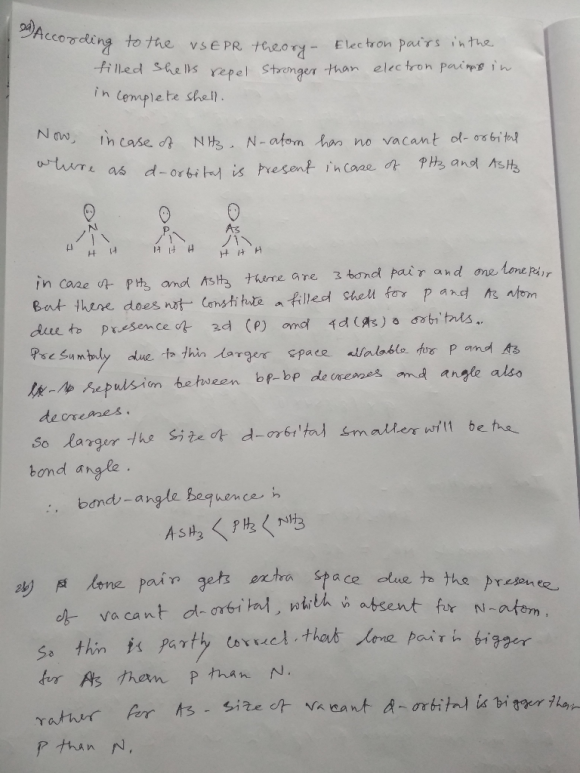 2a) According to the VSEPR theory- Electron pairs in the
filled shells repel stronger than electron pairs in
in complete shell.
Now, in case of NH3. N-atom has no vacant d-orbital
where as d-orbital is present in case of PH3 and AsH3
N P As
H H H H H H H H H
in case of PH3 and AsH3 there are 3 bond pair and one lone pair
But there does not constitute a filled shell for P and As atom
due to presence of 3d (P) and 4d (As) orbitals.
Presumbly due to this larger space avalable for P and As
repulsion between bp-bp decreases and angle also
decreases.
So larger the size of d-orbital smaller will be the
bond angle.
∴ bond-angle Sequence is
AsH3 < PH3 < NH3
2b) lone pair gets extra space due to the presence
of vacant d-orbital, which is absent for N-atom.
So this is partly correct. that lone pair is bigger
for As than P than N.
rather for As - size of vacant d-orbital is bigger than
P than N.